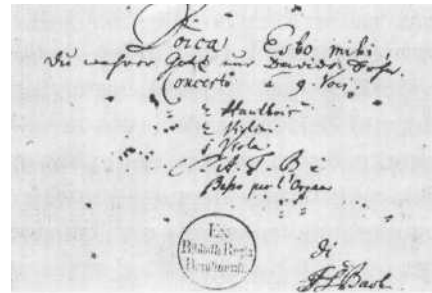 Doica Esto mihi
Du wahrer Gott und Davids Sohn.
Concerto a 9 Voci.
2 Hautbois
2 Violini
1 Viola
S. A. T. B. e
Basso per l'Organo
di
JS Bach
Ex
Biblioth. Regia
Berolinensi.